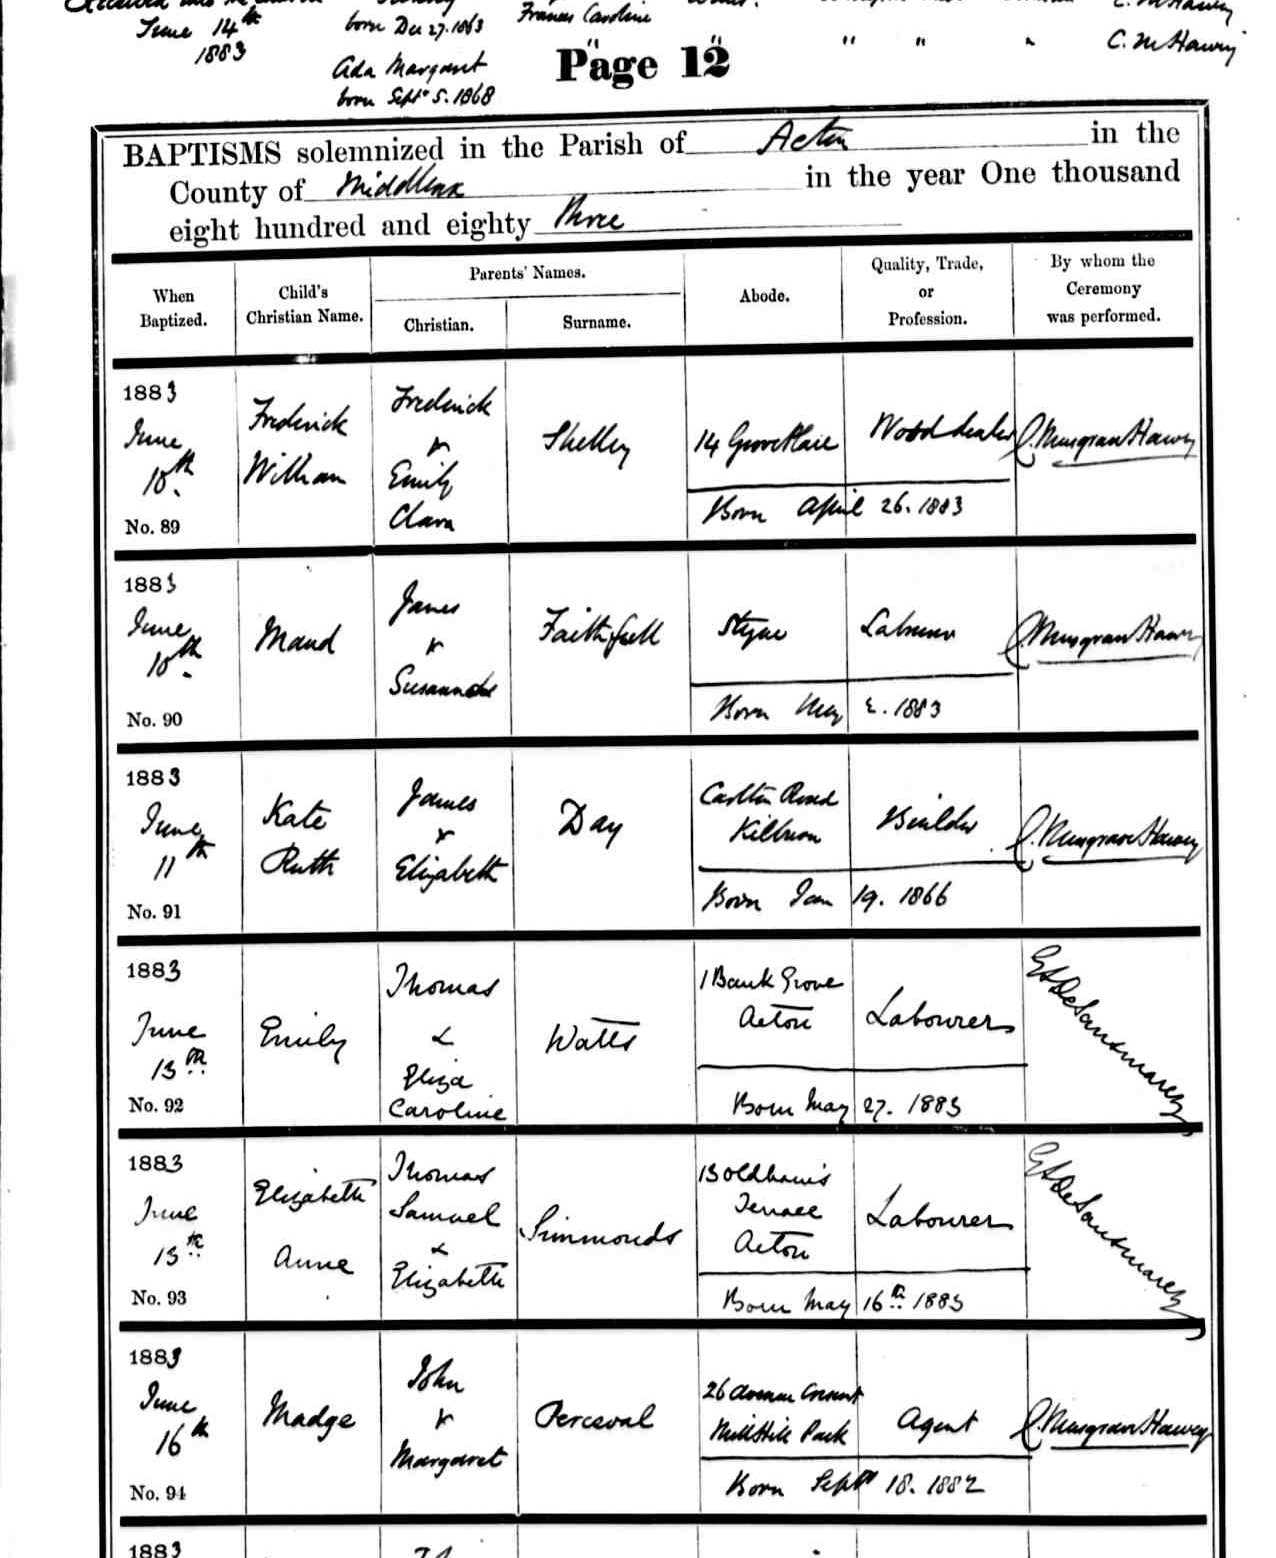 June 14th
1883
born Dec 27. 1863
Frances Caroline
Ada Margaret
born Sept. 5. 1868
" " " " "
C. M Harvey
Page 12
BAPTISMS solemnized in the Parish of Acton in the
County of Middlesex in the year One thousand
eight hundred and eighty three
When Baptized.
Child's Christian Name.
Parents' Names.
Christian.
Surname.
Abode.
Quality, Trade, or Profession.
By whom the Ceremony was performed.
1883
June
10th.
No. 89
Frederick
William
Frederick
&
Emily
Clara
Shelley
14 Grove Place
Wood dealer
Born April 26. 1883
C. Musgrave Harvey
1883
June
10th.
No. 90
Maud
James
&
Susannah
Faithfull
Steyne
Labourer
Born May 2. 1883
C. Musgrave Harvey
1883
June
11th
No. 91
Kate
Ruth
James
&
Elizabeth
Day
Carlton Road
Kilburn
Builder
Born Jan 19. 1866
C. Musgrave Harvey
1883
June
13th
No. 92
Emily
Thomas
&
Eliza
Caroline
Watts
1 Bank Grove
Acton
Labourer
Born May 27. 1883
1883
June
13th
No. 93
Elizabeth
Anne
Thomas
Samuel
&
Elizabeth
Simmonds
Terrace
Acton
Labourer
Born May 16th 1883
1883
June
16th
No. 94
Madge
John
&
Margaret
Perceval
26 Avenue Crescent
Mill Hill Park
Agent
Born Sept 18. 1882
C. Musgrave Harvey
1883